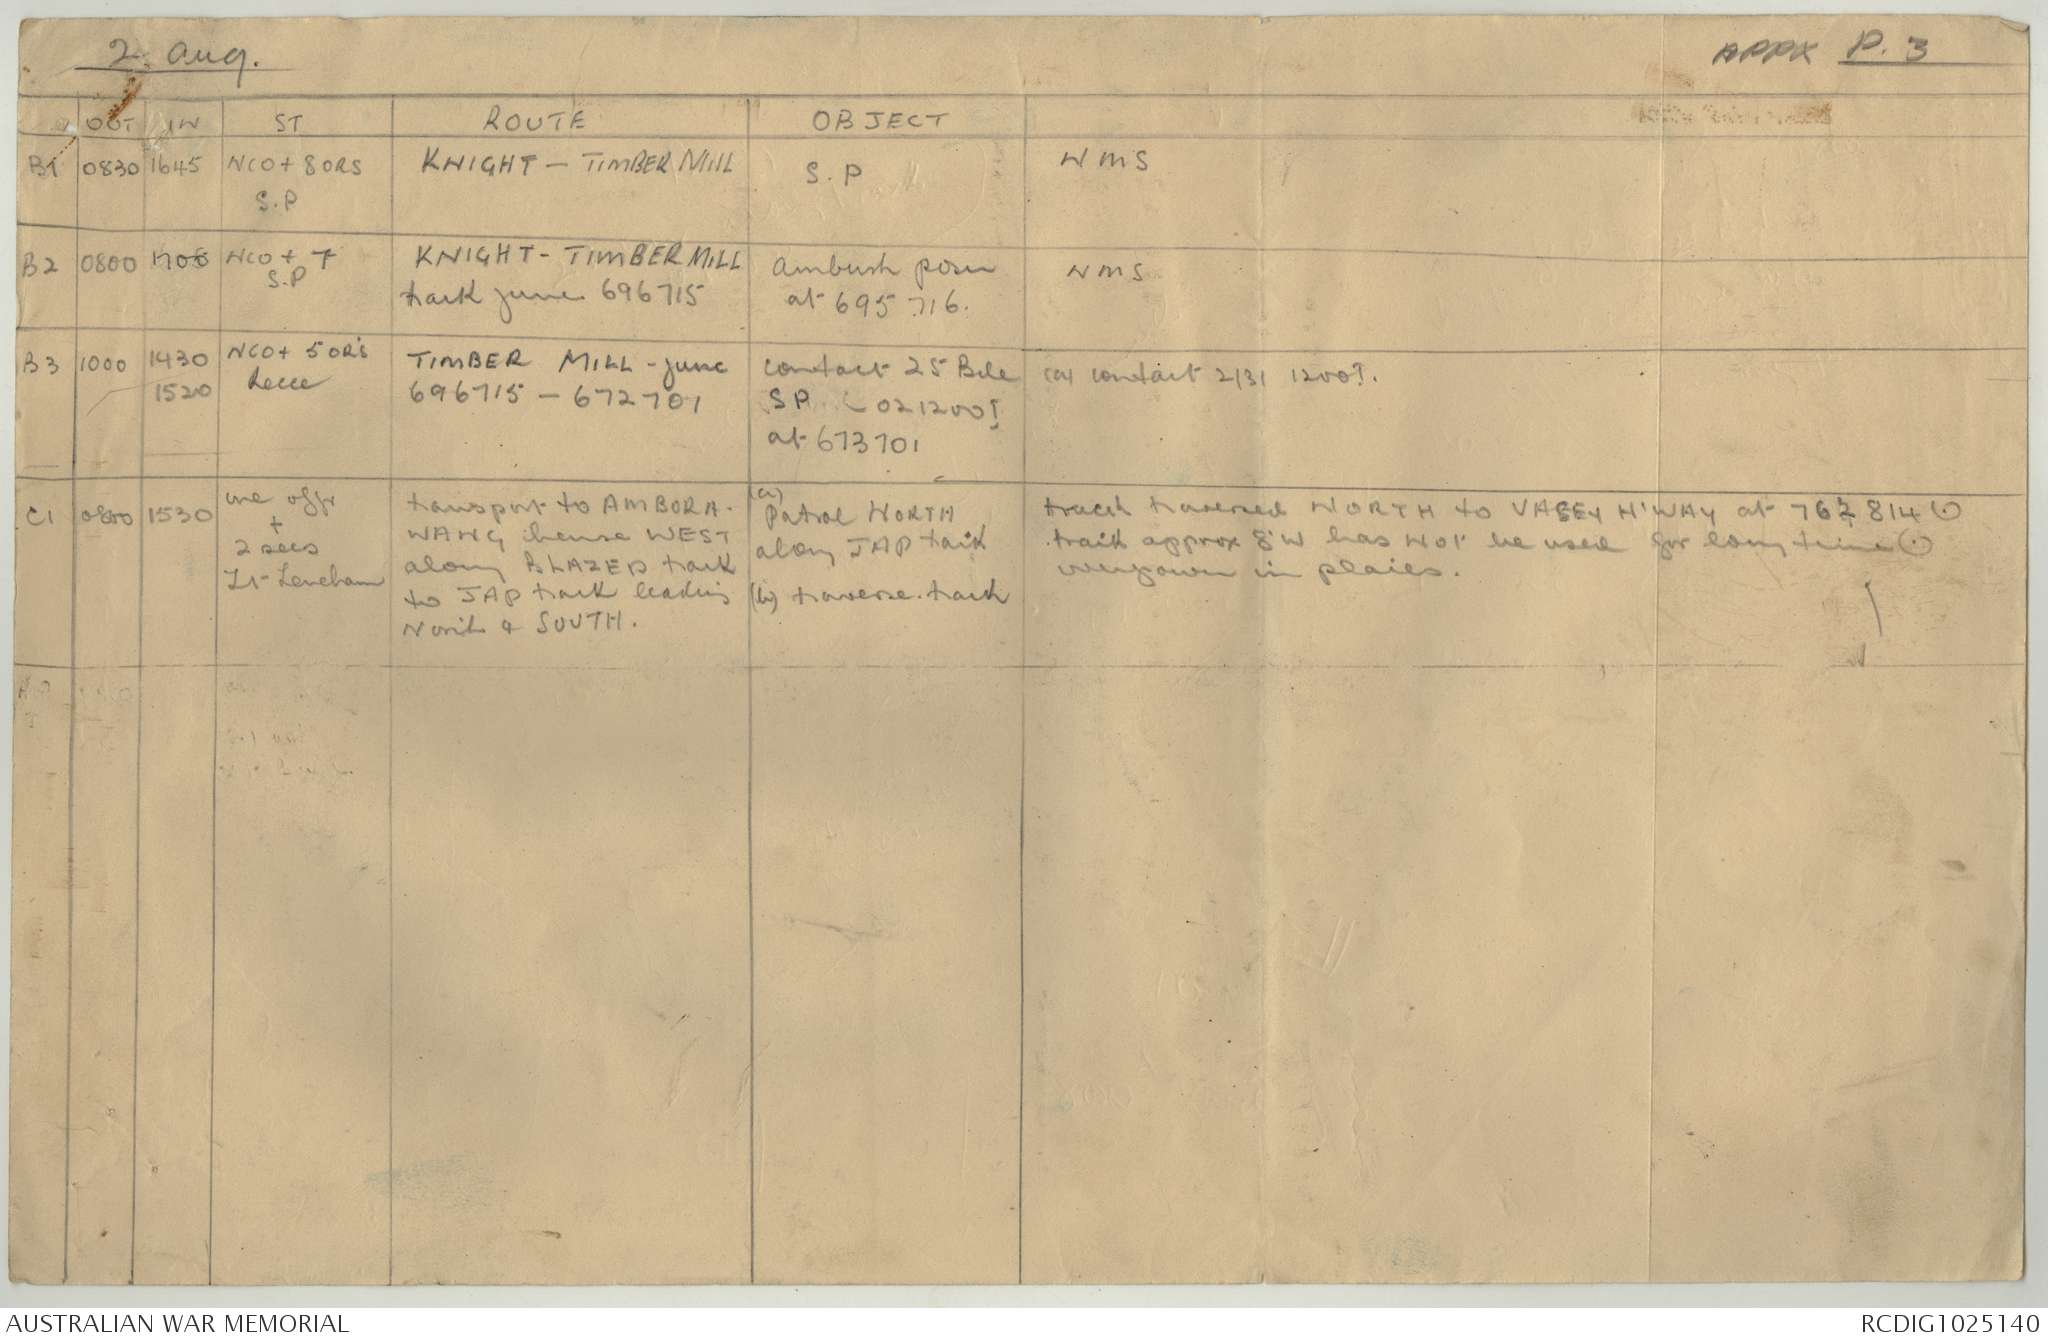 2 Aug.
APPX P. 3
OUT IN ST ROUTE OBJECT
B1 0830 1645 NCO + 8 ORS KNIGHT - TIMBER MILL S.P WMS
S.P
B2 0800 1705 NCO + 7 KNIGHT - TIMBER MILL ambush posn WMS
S.P track junc 696715 at 695 716.
B3 1000 1430 NCO + 5 OR's TIMBER MILL - junc contact 25 Bde (a) contact 2/31 1200I.
1520 Recce 696715 - 672701 SP 021200I
at 673701
C1 0800 1530 one offr transport to AMBORA- (a) Patrol NORTH track traversed NORTH to VASEY H'WAY at 762 814 ⊙
+ WANG thence WEST along JAP track track approx 8'W has NOT be used for long time ⊙
2 secs along BLAZED track overgrown in places.
Lt to JAP track leading (b) traverse track
North & SOUTH.
AUSTRALIAN WAR MEMORIAL
RCDIG1025140